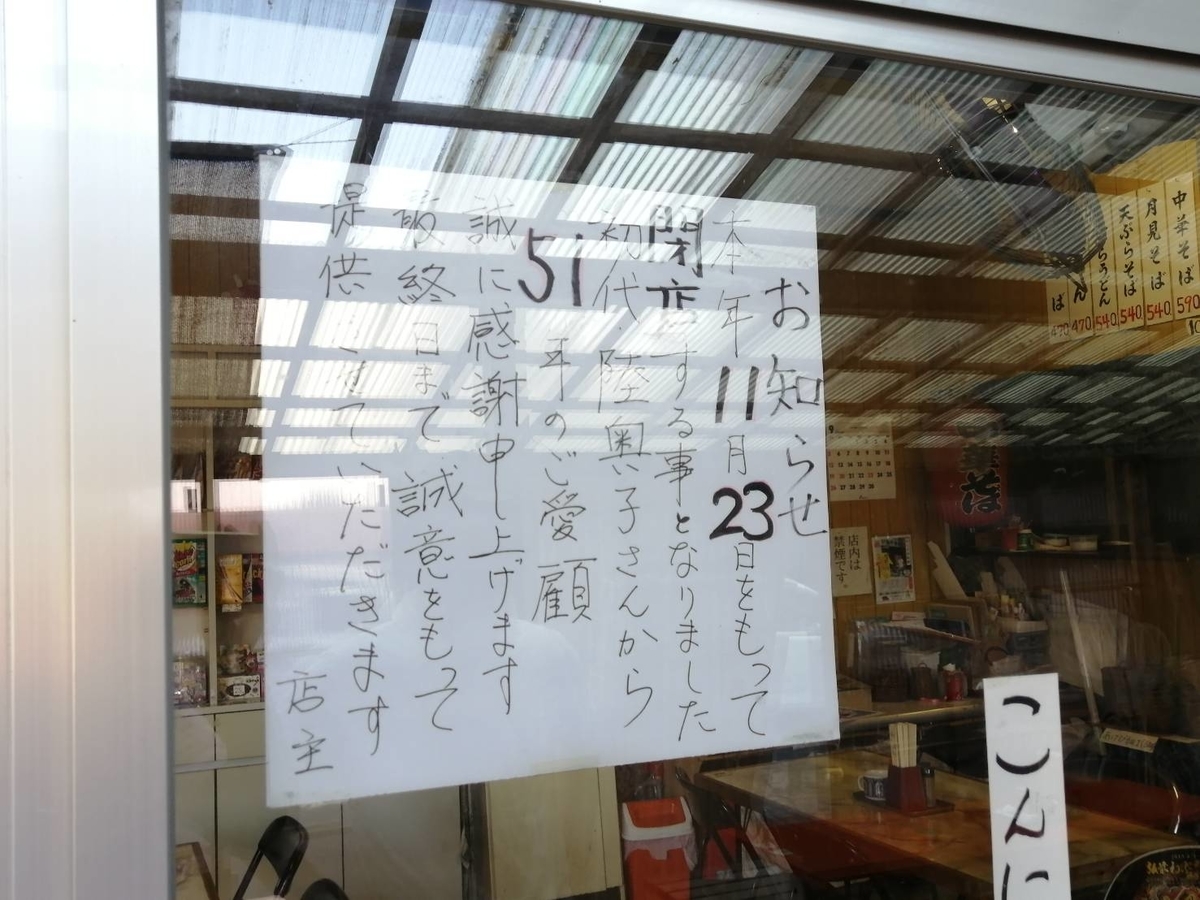 お知らせ
本年11月23日をもって
閉店する事となりました
初代 陸奥子さんから
51年のご愛顧
誠に感謝申し上げます
最終日まで誠意をもって
提供させていただきます
店主
中華そば 590
月見そば 540
天ぷらそば 540
うどん 540
ん 470
ば 470
華そば
店内は
禁煙です。
こんに